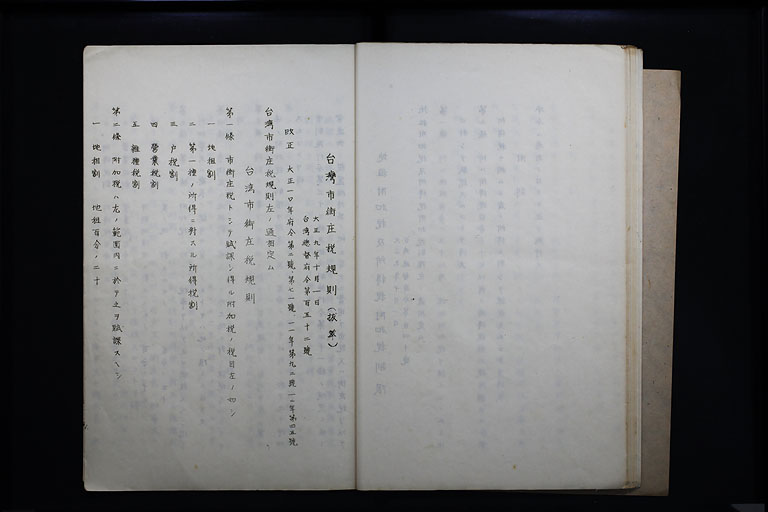 台湾市街庄税規則（抜萃）
大正九年十月一日
台湾総督府令第百五十二號
改正 大正一〇年府令第二號、第七一號、一一年第九二號、一二年第四五號
台湾市街庄税規則左ノ通相定ム
台湾市街庄税規則
第一條 市街庄税トシテ賦課シ得ル附加税ノ税目左ノ如シ
一 地租割
二 第一種ノ所得ニ対スル所得税割
三 戸税割
四 營業税割
五 雜種税割
第二條 附加税ハ左ノ範囲内ニ於テ之ヲ賦課スヘシ
一 地租割 地租百分ノ二十